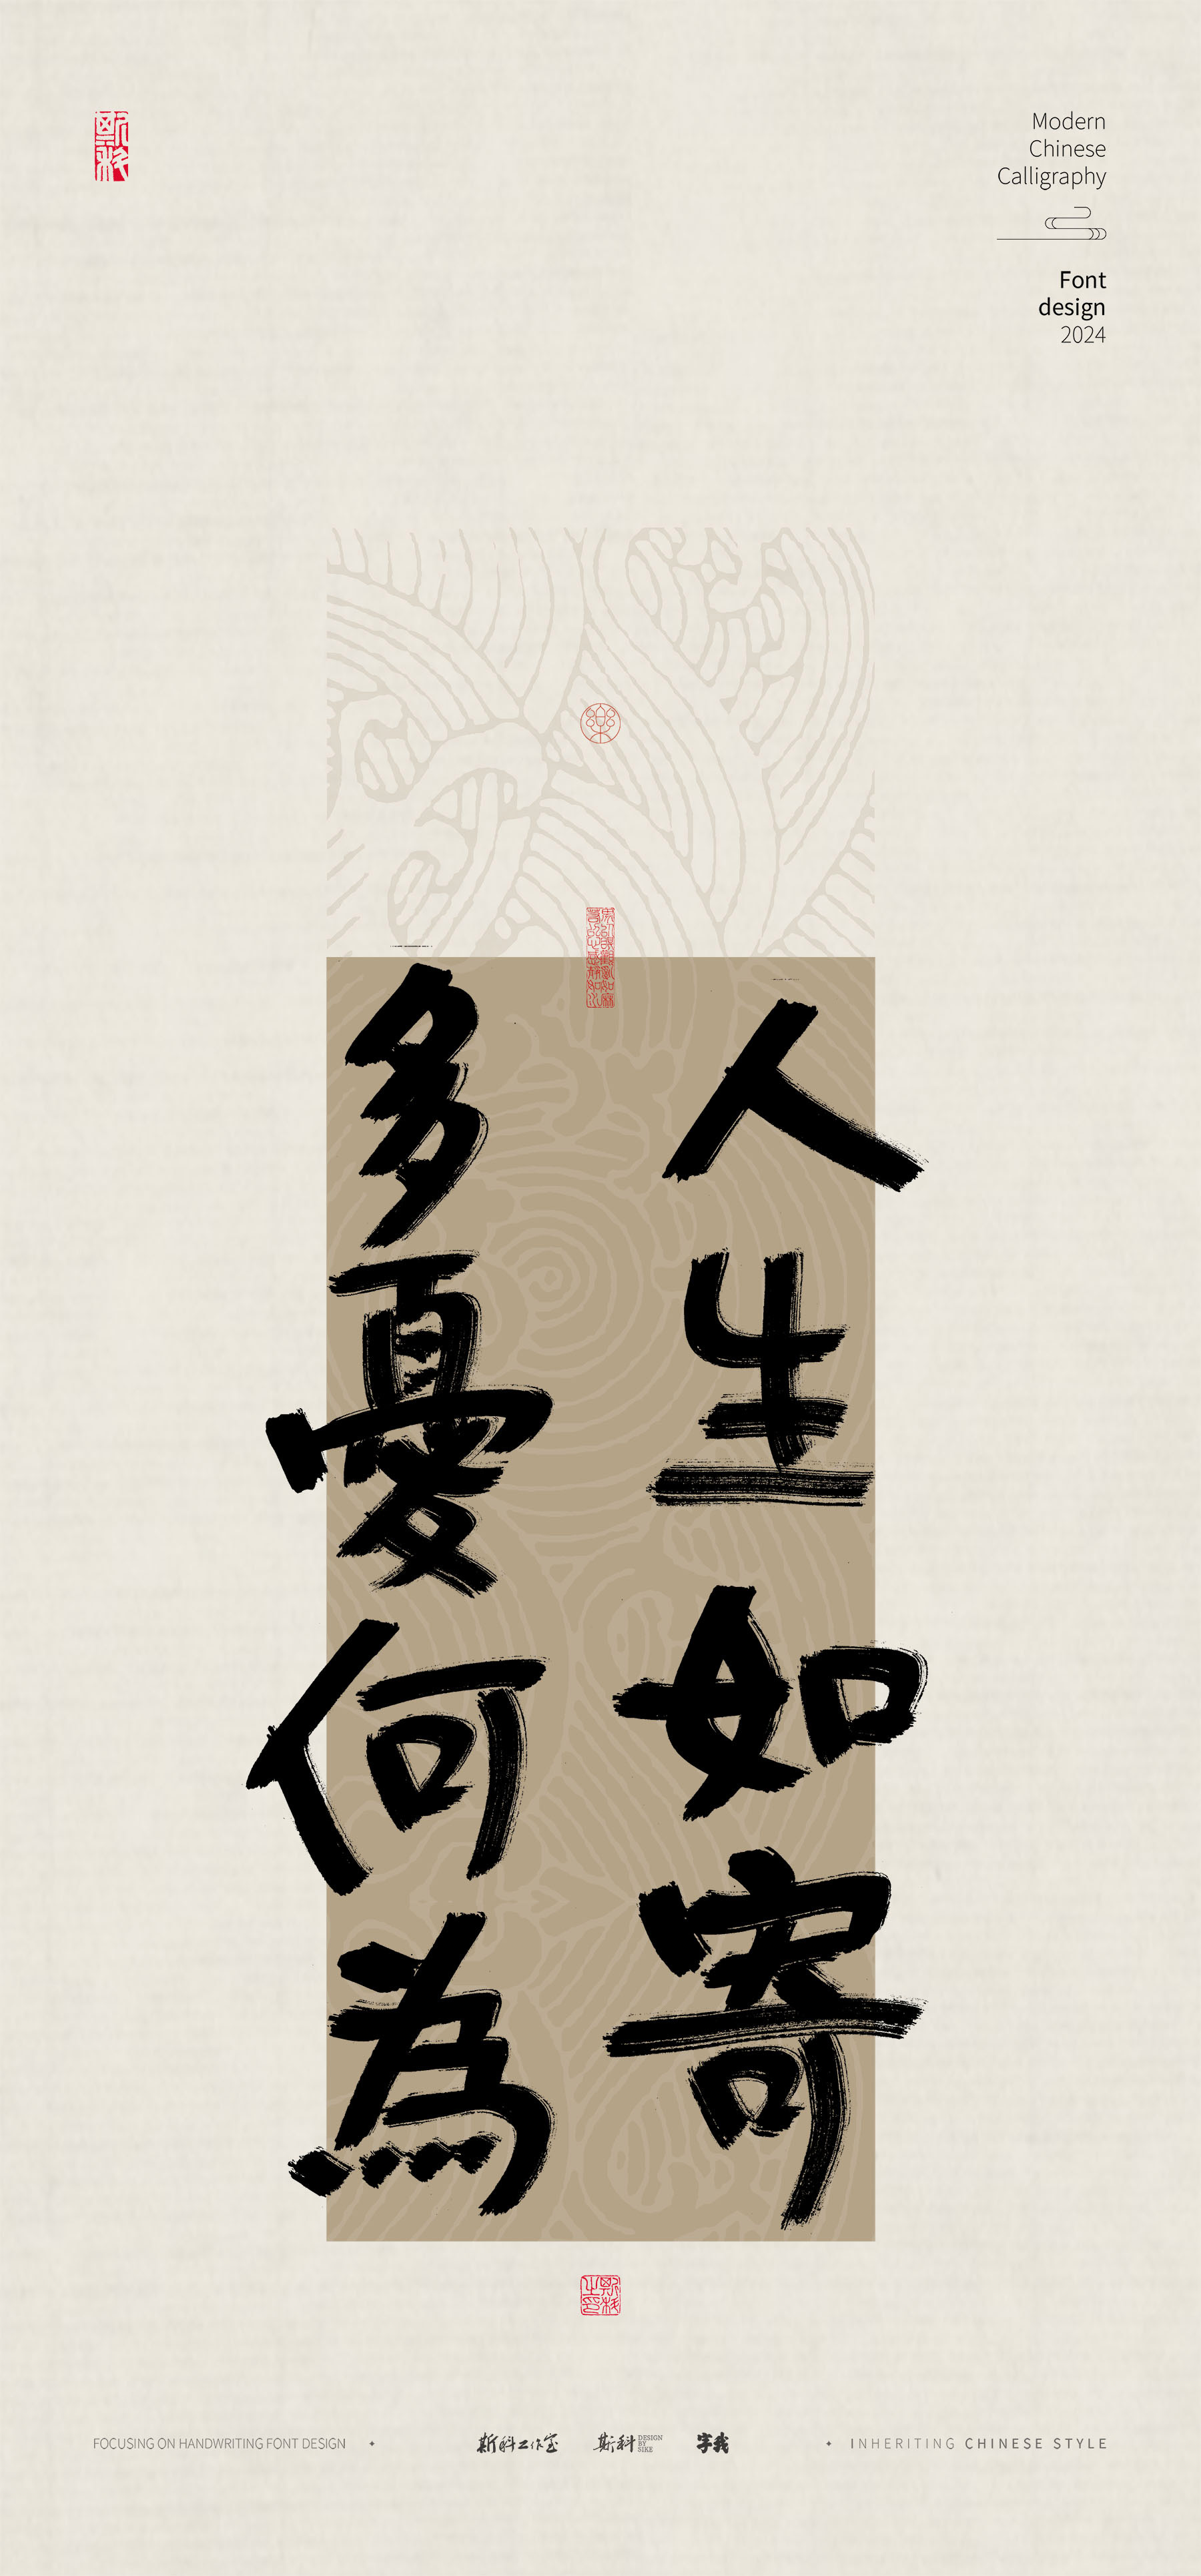 斯科
Modern
Chinese
Calligraphy
Font
design
2024
人生如寄
多憂何為
斯科之印
FOCUSING ON HANDWRITING FONT DESIGN
斯科工作室
斯科
DESIGN
BY
SIKE
字我
INHERITING CHINESE STYLE